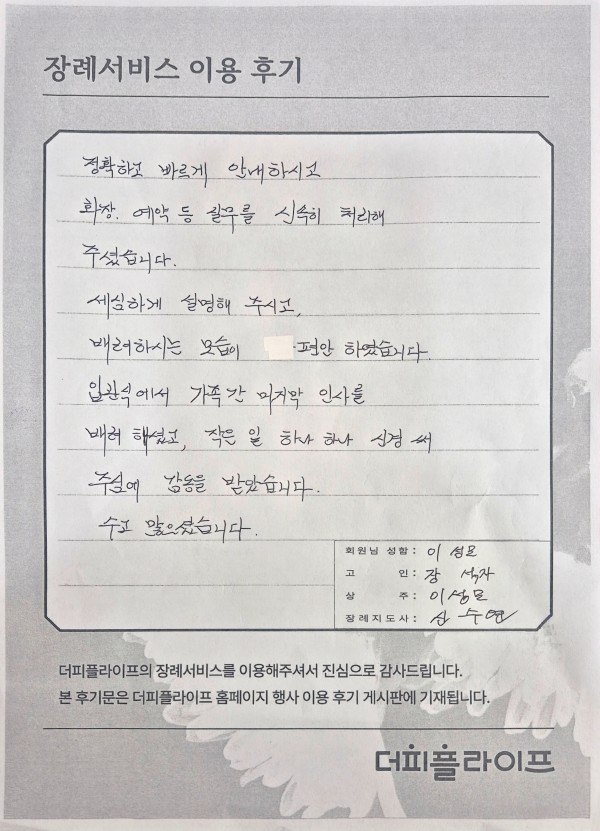 장례서비스 이용 후기
정확하고 바르게 안내하시고
화장. 예약 등 실무를 신속히 처리해
주셨습니다.
세심하게 설명해 주시고,
배려하시는 모습이 편안 하였습니다.
입관식에서 가족간 마지막 인사를
배려 해셨고, 작은 일 하나 하나 신경 써
주심에 감동을 받았습니다.
수고 많으셨습니다.
회원님 성함 : 이 성모
고 인 : 장 석자
상 주 : 이성모
장례지도사 : 신 수연
더피플라이프의 장례서비스를 이용해주셔서 진심으로 감사드립니다.
본 후기문은 더피플라이프 홈페이지 행사 이용 후기 게시판에 기재됩니다.
더피플라이프